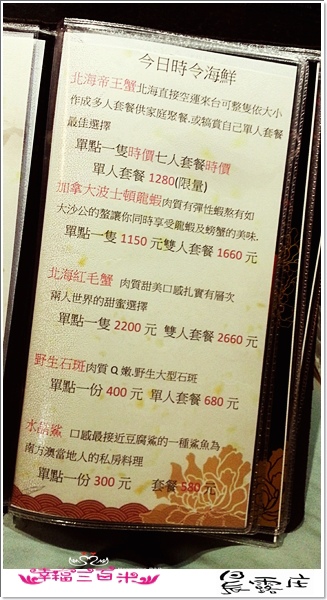 今日時令海鮮
北海帝王蟹北海直接空運來台可整隻依大小
作成多人套餐供家庭聚餐,或犒賞自己單人套餐
最佳選擇
單點一隻時價七人套餐時價
單人套餐 1280(限量)
加拿大波士頓龍蝦肉質有彈性蝦熬有如
大沙公的螯讓你同時享受龍蝦及螃蟹的美味.
單點一隻 1150 元雙人套餐 1660 元
北海紅毛蟹 肉質甜美口感扎實有層次
兩人世界的甜蜜選擇
單點一隻 2200 元 雙人套餐 2660 元
野生石斑肉質 Q 嫩.野生大型石斑
單點一份 400 元 單人套餐 680 元
水晶鯊 口感最接近豆腐鯊的一種鯊魚為
南方澳當地人的私房料理
單點一份 300 元 套餐 580 元
幸福三百米
晨露庄